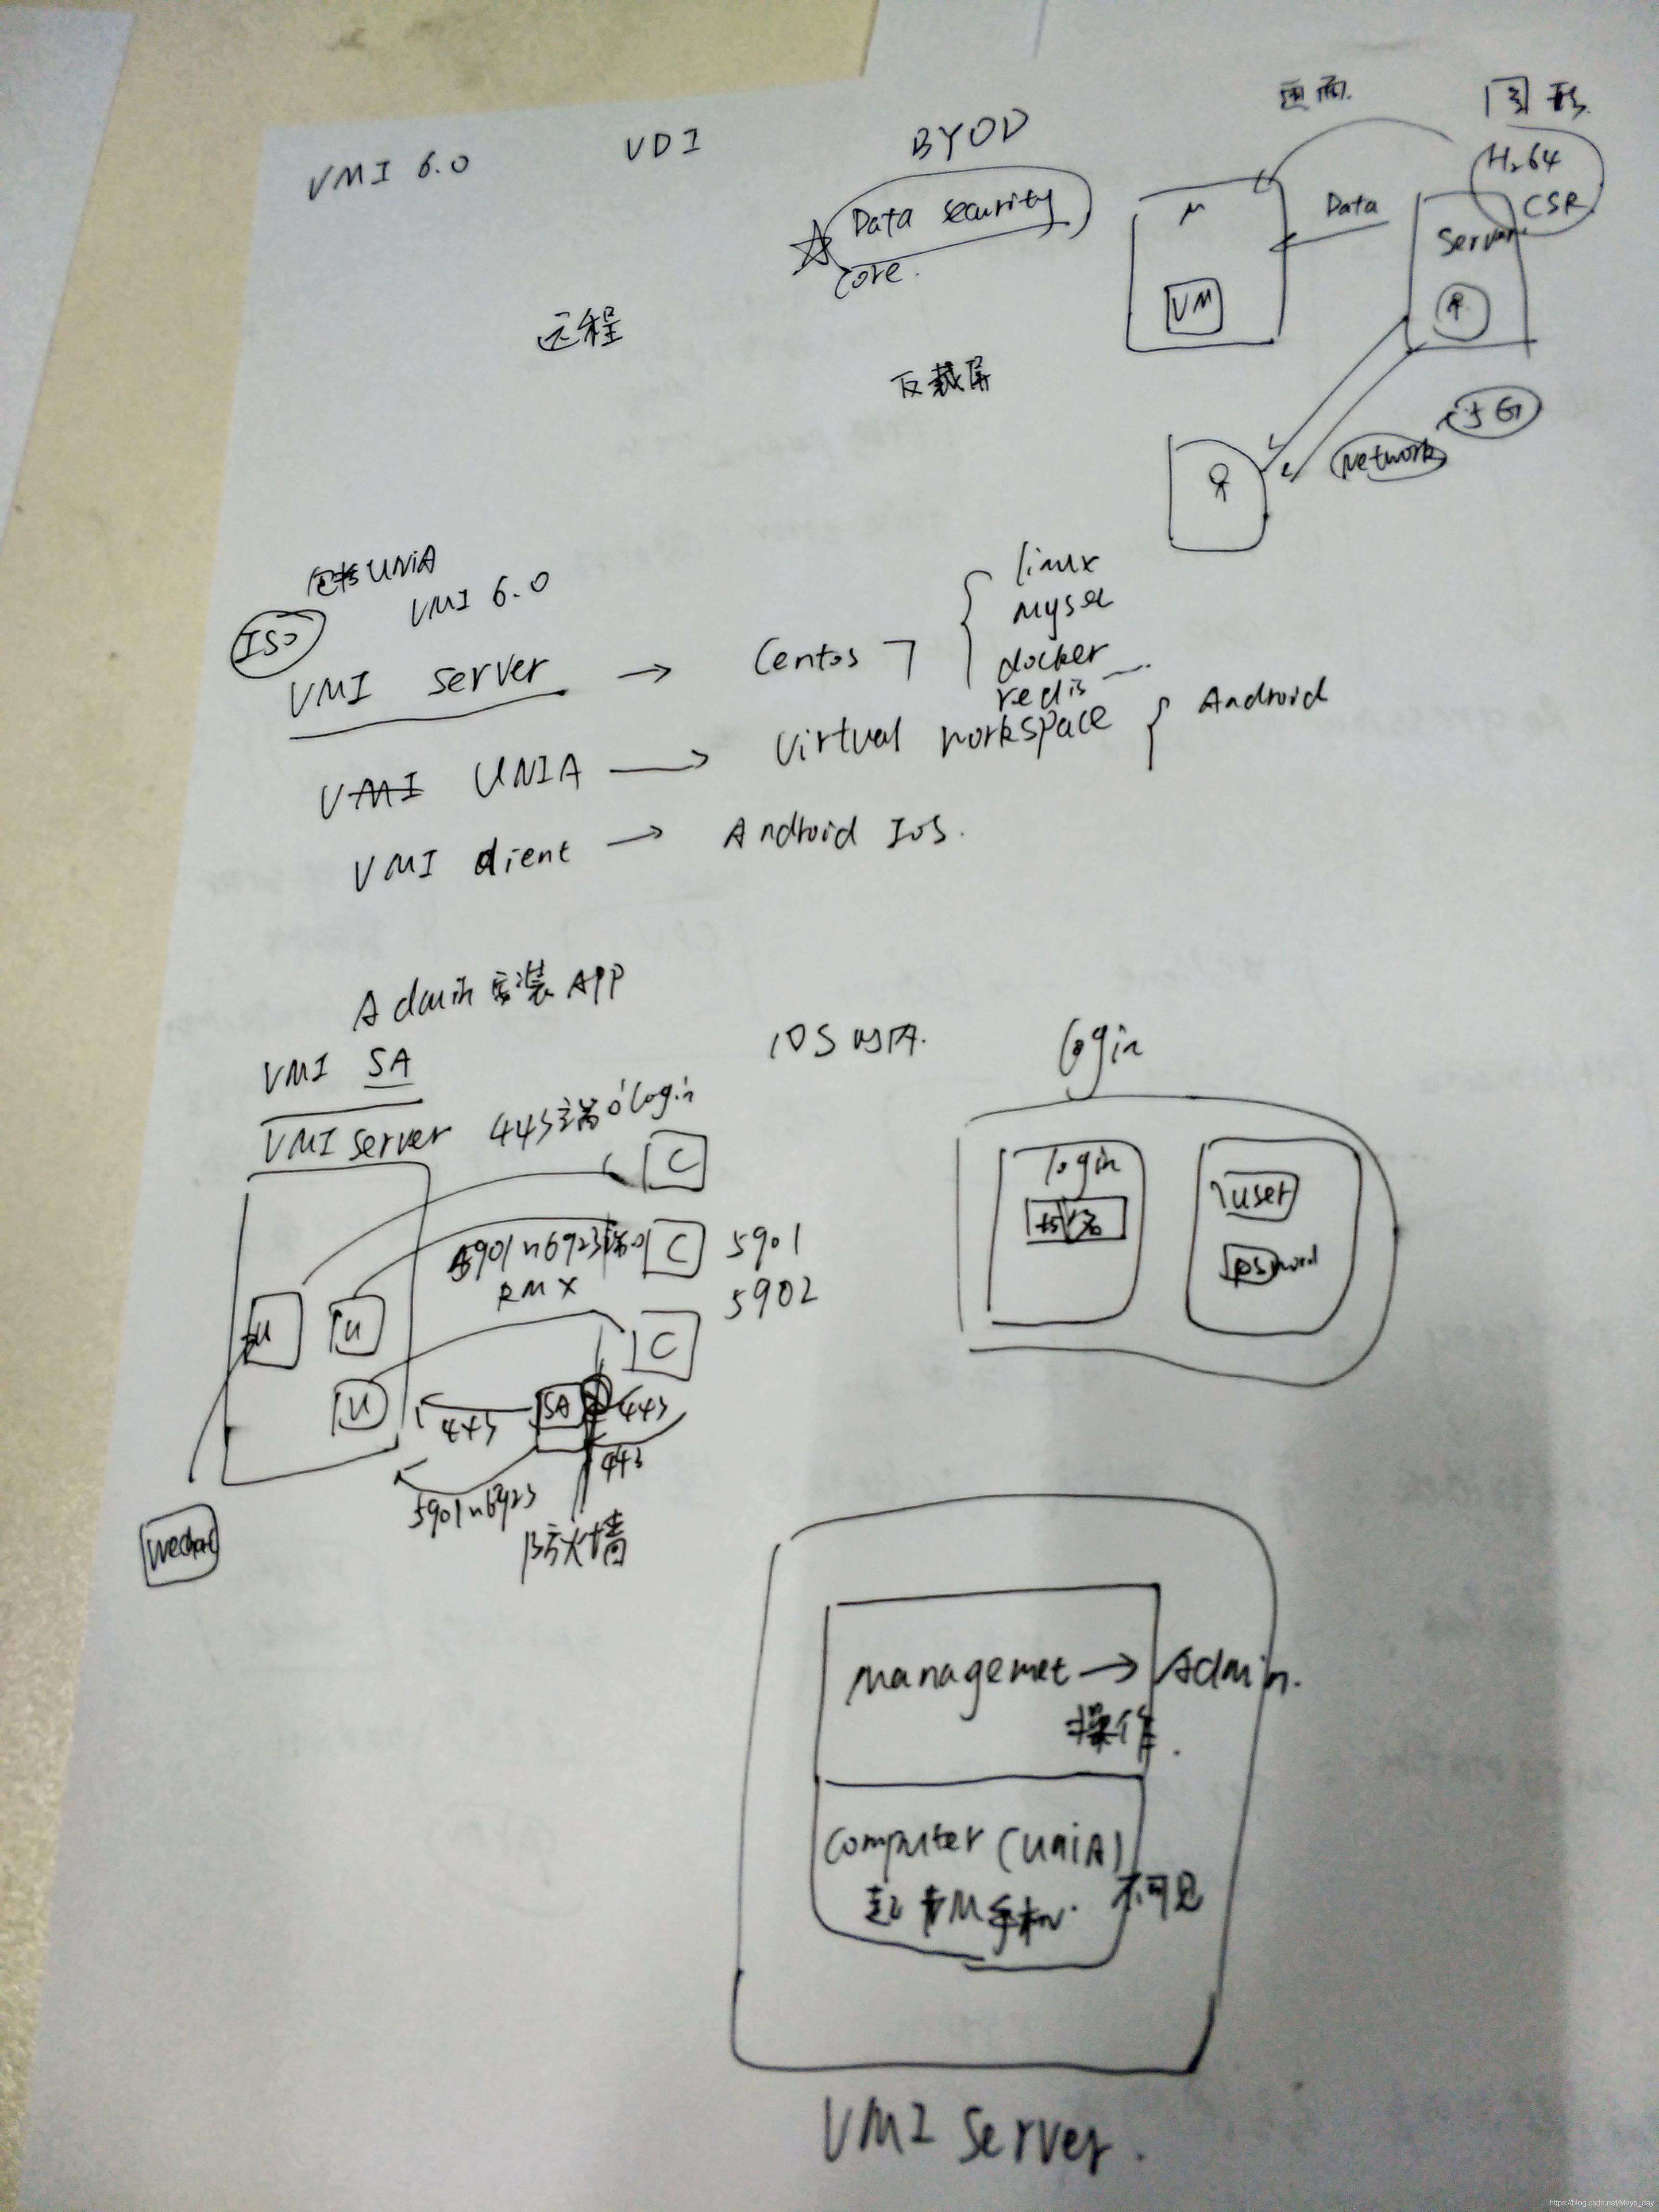 画面.
图形
VMI 6.0
VDI
BYOD
H264
CSR
Data security
core.
Data
Server
VM
远程
反截屏
5G
Network
包括UNiA
VMI 6.0
ISO
VMI server → Centos 7
linux
mysql
docker
redis
VMI UNIA → Virtual workspace
Android
VMI client → Android IOS.
Admin 安装 APP
VMI SA
IOS
login
VMI server
443端口login
C
C
C
5901n6923端口
RMX
5901
5902
U
U
U
SA
443
443
443
5901n6923
防火墙
wechat
login
user
managemet → Admin.
操作.
computer (UniA)
不可见
VMI Server.
https://blog.csdn.net/Mays_day